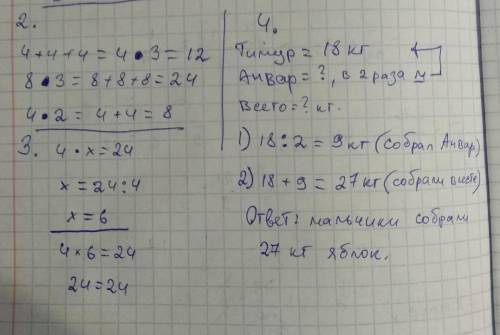 2.
4+4+4=4•3=12
8•3=8+8+8=24
4•2=4+4=8
3. 4•x=24
x=24:4
x=6
4×6=24
24=24
4.
Тимур=18 кг
Анвар=?, в 2 раза м
Всего=? кг.
1) 18:2=9 кг (собрал Анвар)
2) 18+9=27 кг (собрали вместе)
Ответ: мальчики собрали
27 кг яблок.